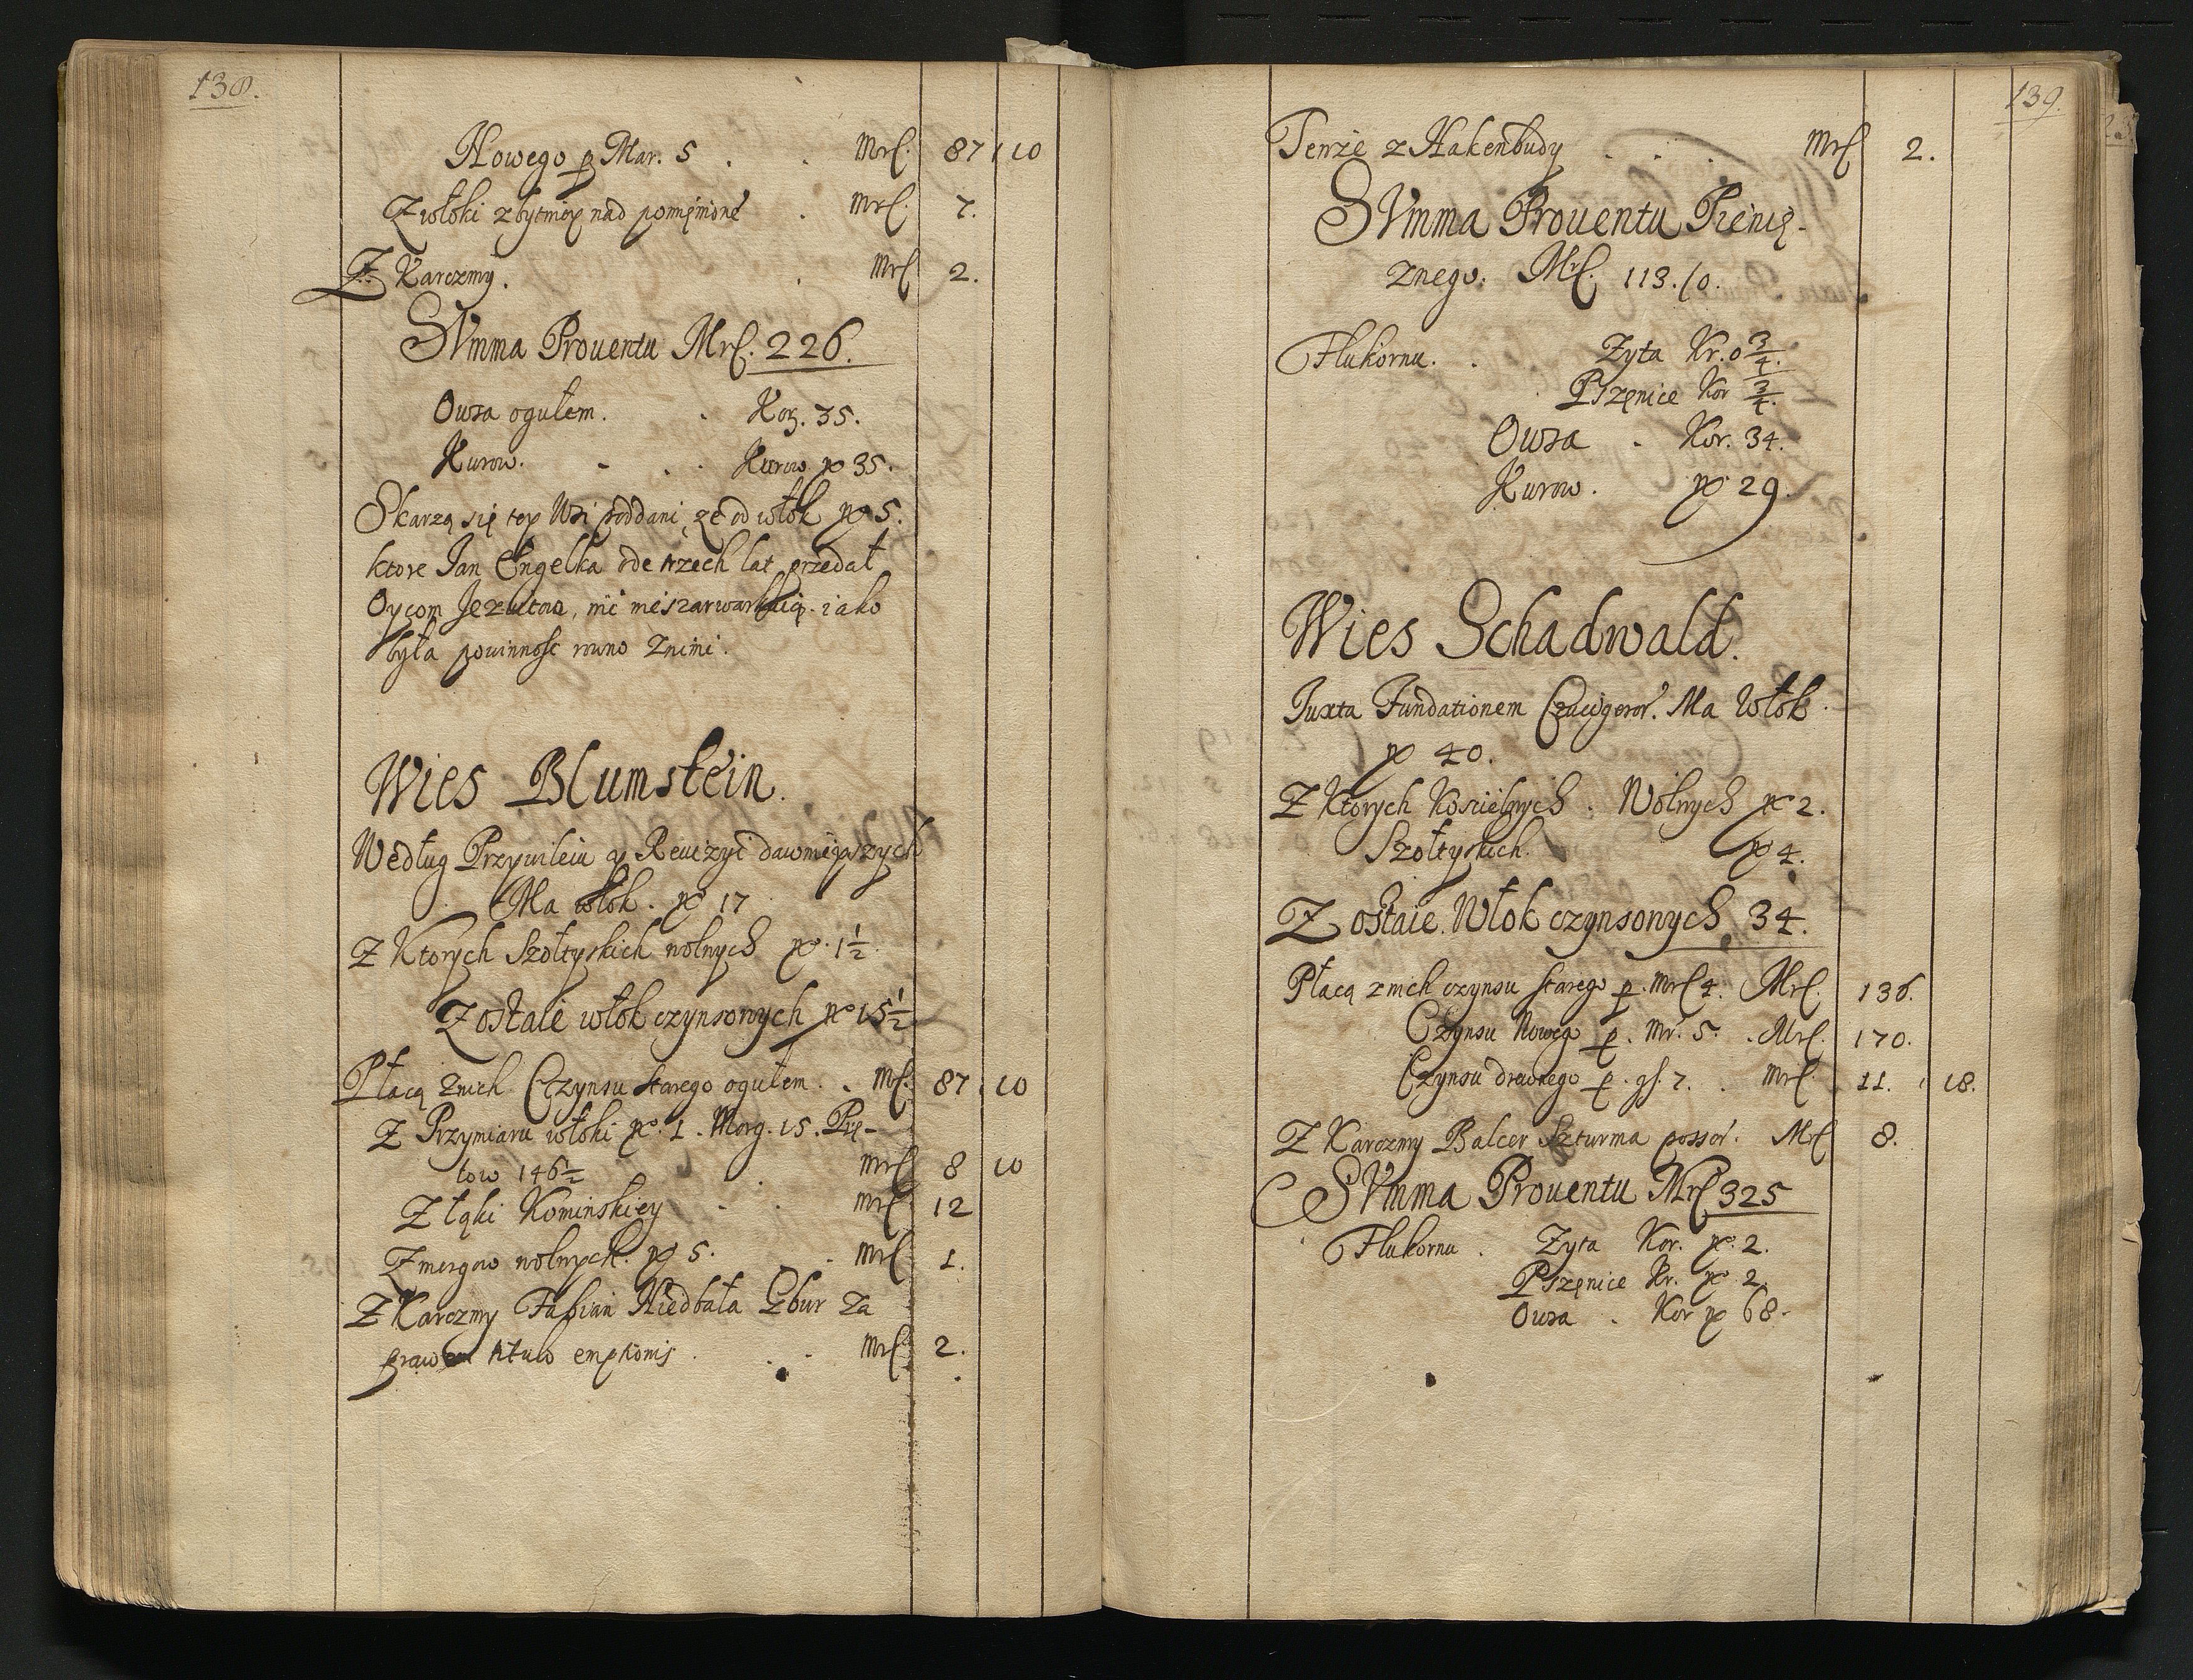 138.
Nowego p Mar. 5 . . Mrl. 87 10
Z włoki zbytniey nad pomięnioné . Mrl. 7.
Z Karczmy. . Mrl 2.
SVmma Prouentu Mrl. 226.
Owsa ogułem. . Korz. 35.
Kurow. - . . Kurow № 35.
Skarzą się tey Wsi poddani, ze od włok № 5.
ktore Jan Engelka ode trzech lat przedał
Oycom Jezuitom, nic nie szarwarkuią. iako
była powinnosc rowno znimi.
Wies Blumstein.
Według Przywileiu y Rewizyi dawnieyszych
Ma włok. № 17
Z Ktorych Szołtyskich wolnych № 1½.
Zostaie włok czynsowych № 15½
Płacą znich Czynsu starego ogułem. . Mrl. 87. 10
Z Przymiaru włoki №. 1. Morg. 15. Prę-
tow 146½ . Mrl 8 10
Z łąki Kominskiey - . Mrl 12
Z morgow wolnych. № 5. . . Mrl 1.
Z Karczmy Fabian Niedbała Gbur Za
prawem titulo emptionis . . . Mrl 2.
139.
Tenże z Hakenbudy . . . Mrl 2.
SVmma Prouentu Pienię-
znego. Mrl. 113. 10.
Flukornu. . Zyta Kr. 0¾.
Pszęnice Kor ¾.
Owsa . Kor. 34.
Kurow. № 29.
Wies Schadwald.
Juxta Fundationem Ma Włok.
№ 40.
Z Ktorych Koscielnych. Wolnych № 2.
Szołtyskich. № 4.
Zostaie. Włok czynsowych 34.
Płacą z nich czynsu starego p. Mrl 4. Mrl. 136.
Czynsu Nowego p. Mr. 5. . Mrl. 170.
Czynsu drewnego p. gs. 7. . Mrl. 11. 18.
Z Karczmy Balcer Szturma possor. Mrl 8.
SVmma Prouentu Mrl 325
Flukornu . Zyta Kor. №. 2.
Pszęnice Kr. № 2.
Owsa . Kor № 68.